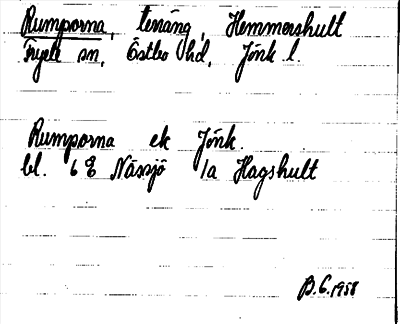 Rumporna, terräng, Hemmershult
Tryek sn, Östbo hd, Jönk l.
Rumporna ek Jönk.
bl. 6 E Nässjö 1a Hagshult
B.G. 1958